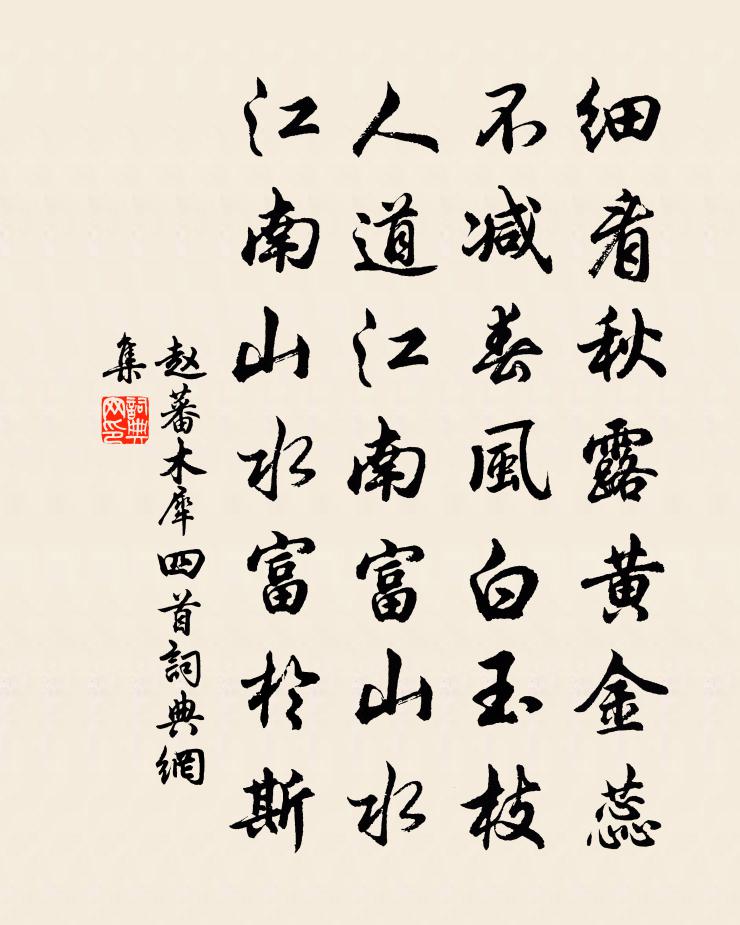 细看秋露黄金蕊
不减春風白玉枝
人道江南富山水
江南山水富於斯
赵蕃木犀四首詞典網
集
詞典网印